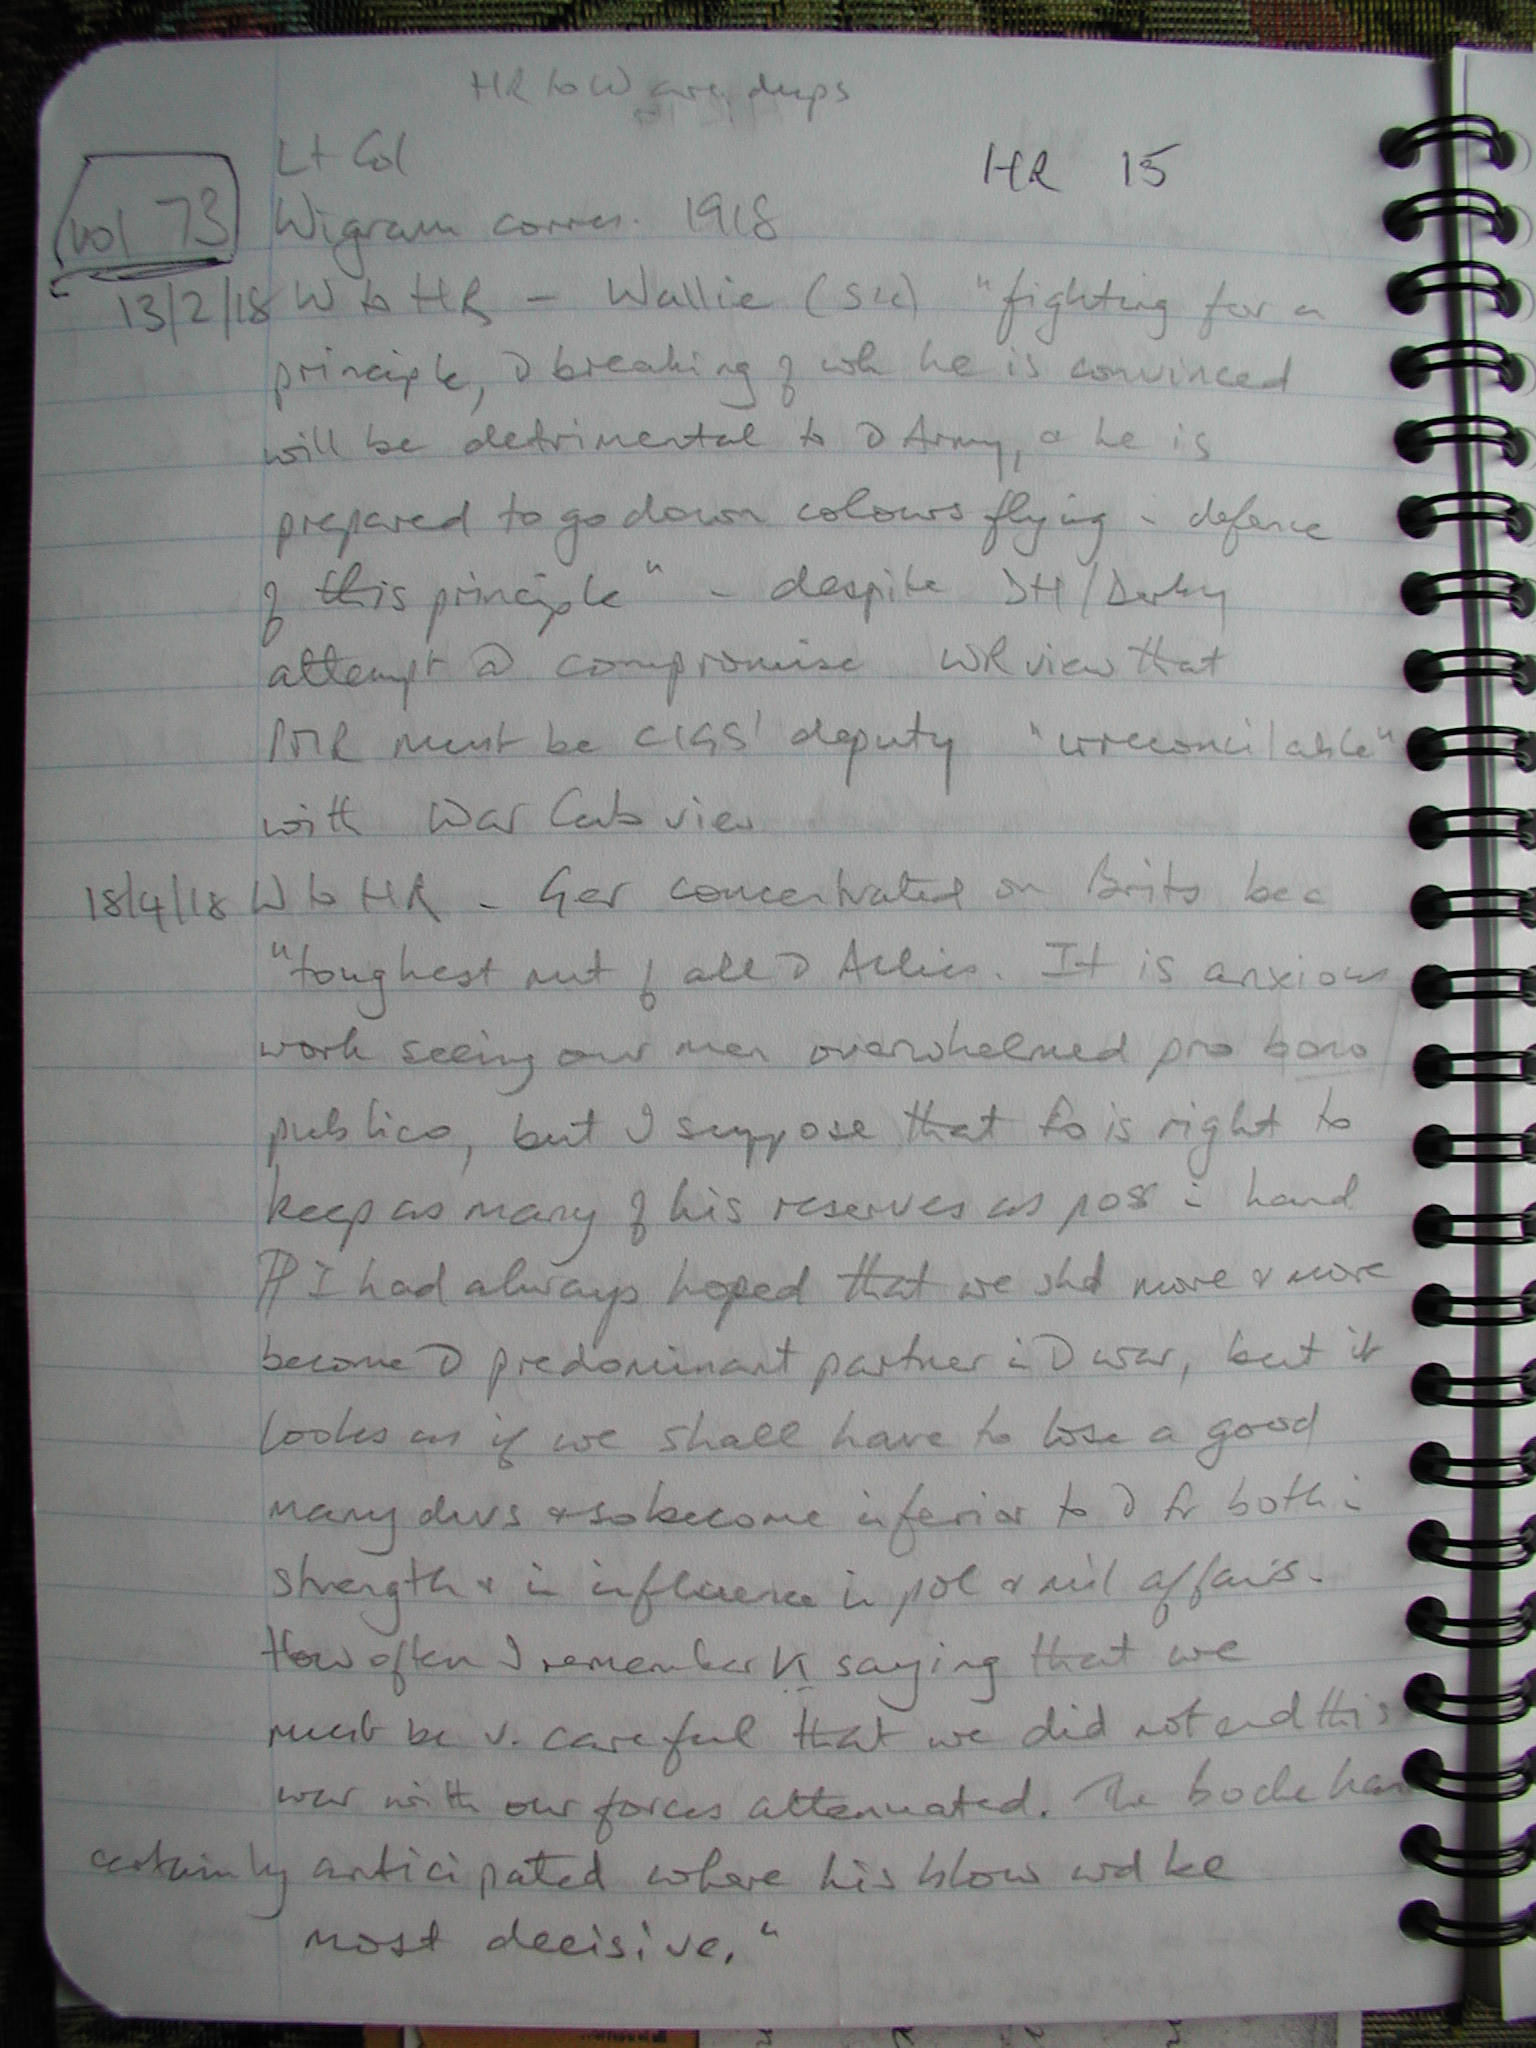 HR to W are dups
Lt Col
HR 15
vol 73
Wigram corres. 1918
13/2/18 W to HR - Wallie (sic) "fighting for a
principle, D breaking of wh he is convinced
will be detrimental to D Army, & he is
prepared to go down colours flying i defence
of this principle" - despite DH/Derby
attempt @ compromise WR view that
PMR must be CIGS' deputy "irreconcilable"
with War Cab view
18/4/18 W to HR - Ger concentrated on Brits bec
"toughest nut of all D Allies. It is anxious
work seeing our men overwhelmed pro bono
publico, but I suppose that Fo is right to
keep as many of his reserves as poss i hand
¶ I had always hoped that we shd more & more
become D predominant partner i D war, but it
looks as if we shall have to lose a good
many divs & so become inferior to D Fr both i
strength & in influence in pol & mil affairs.
How often I remember K saying that we
must be v. careful that we did not end this
war with our forces attenuated. The boche have
certainly anticipated where his blow wd be
most decisive."